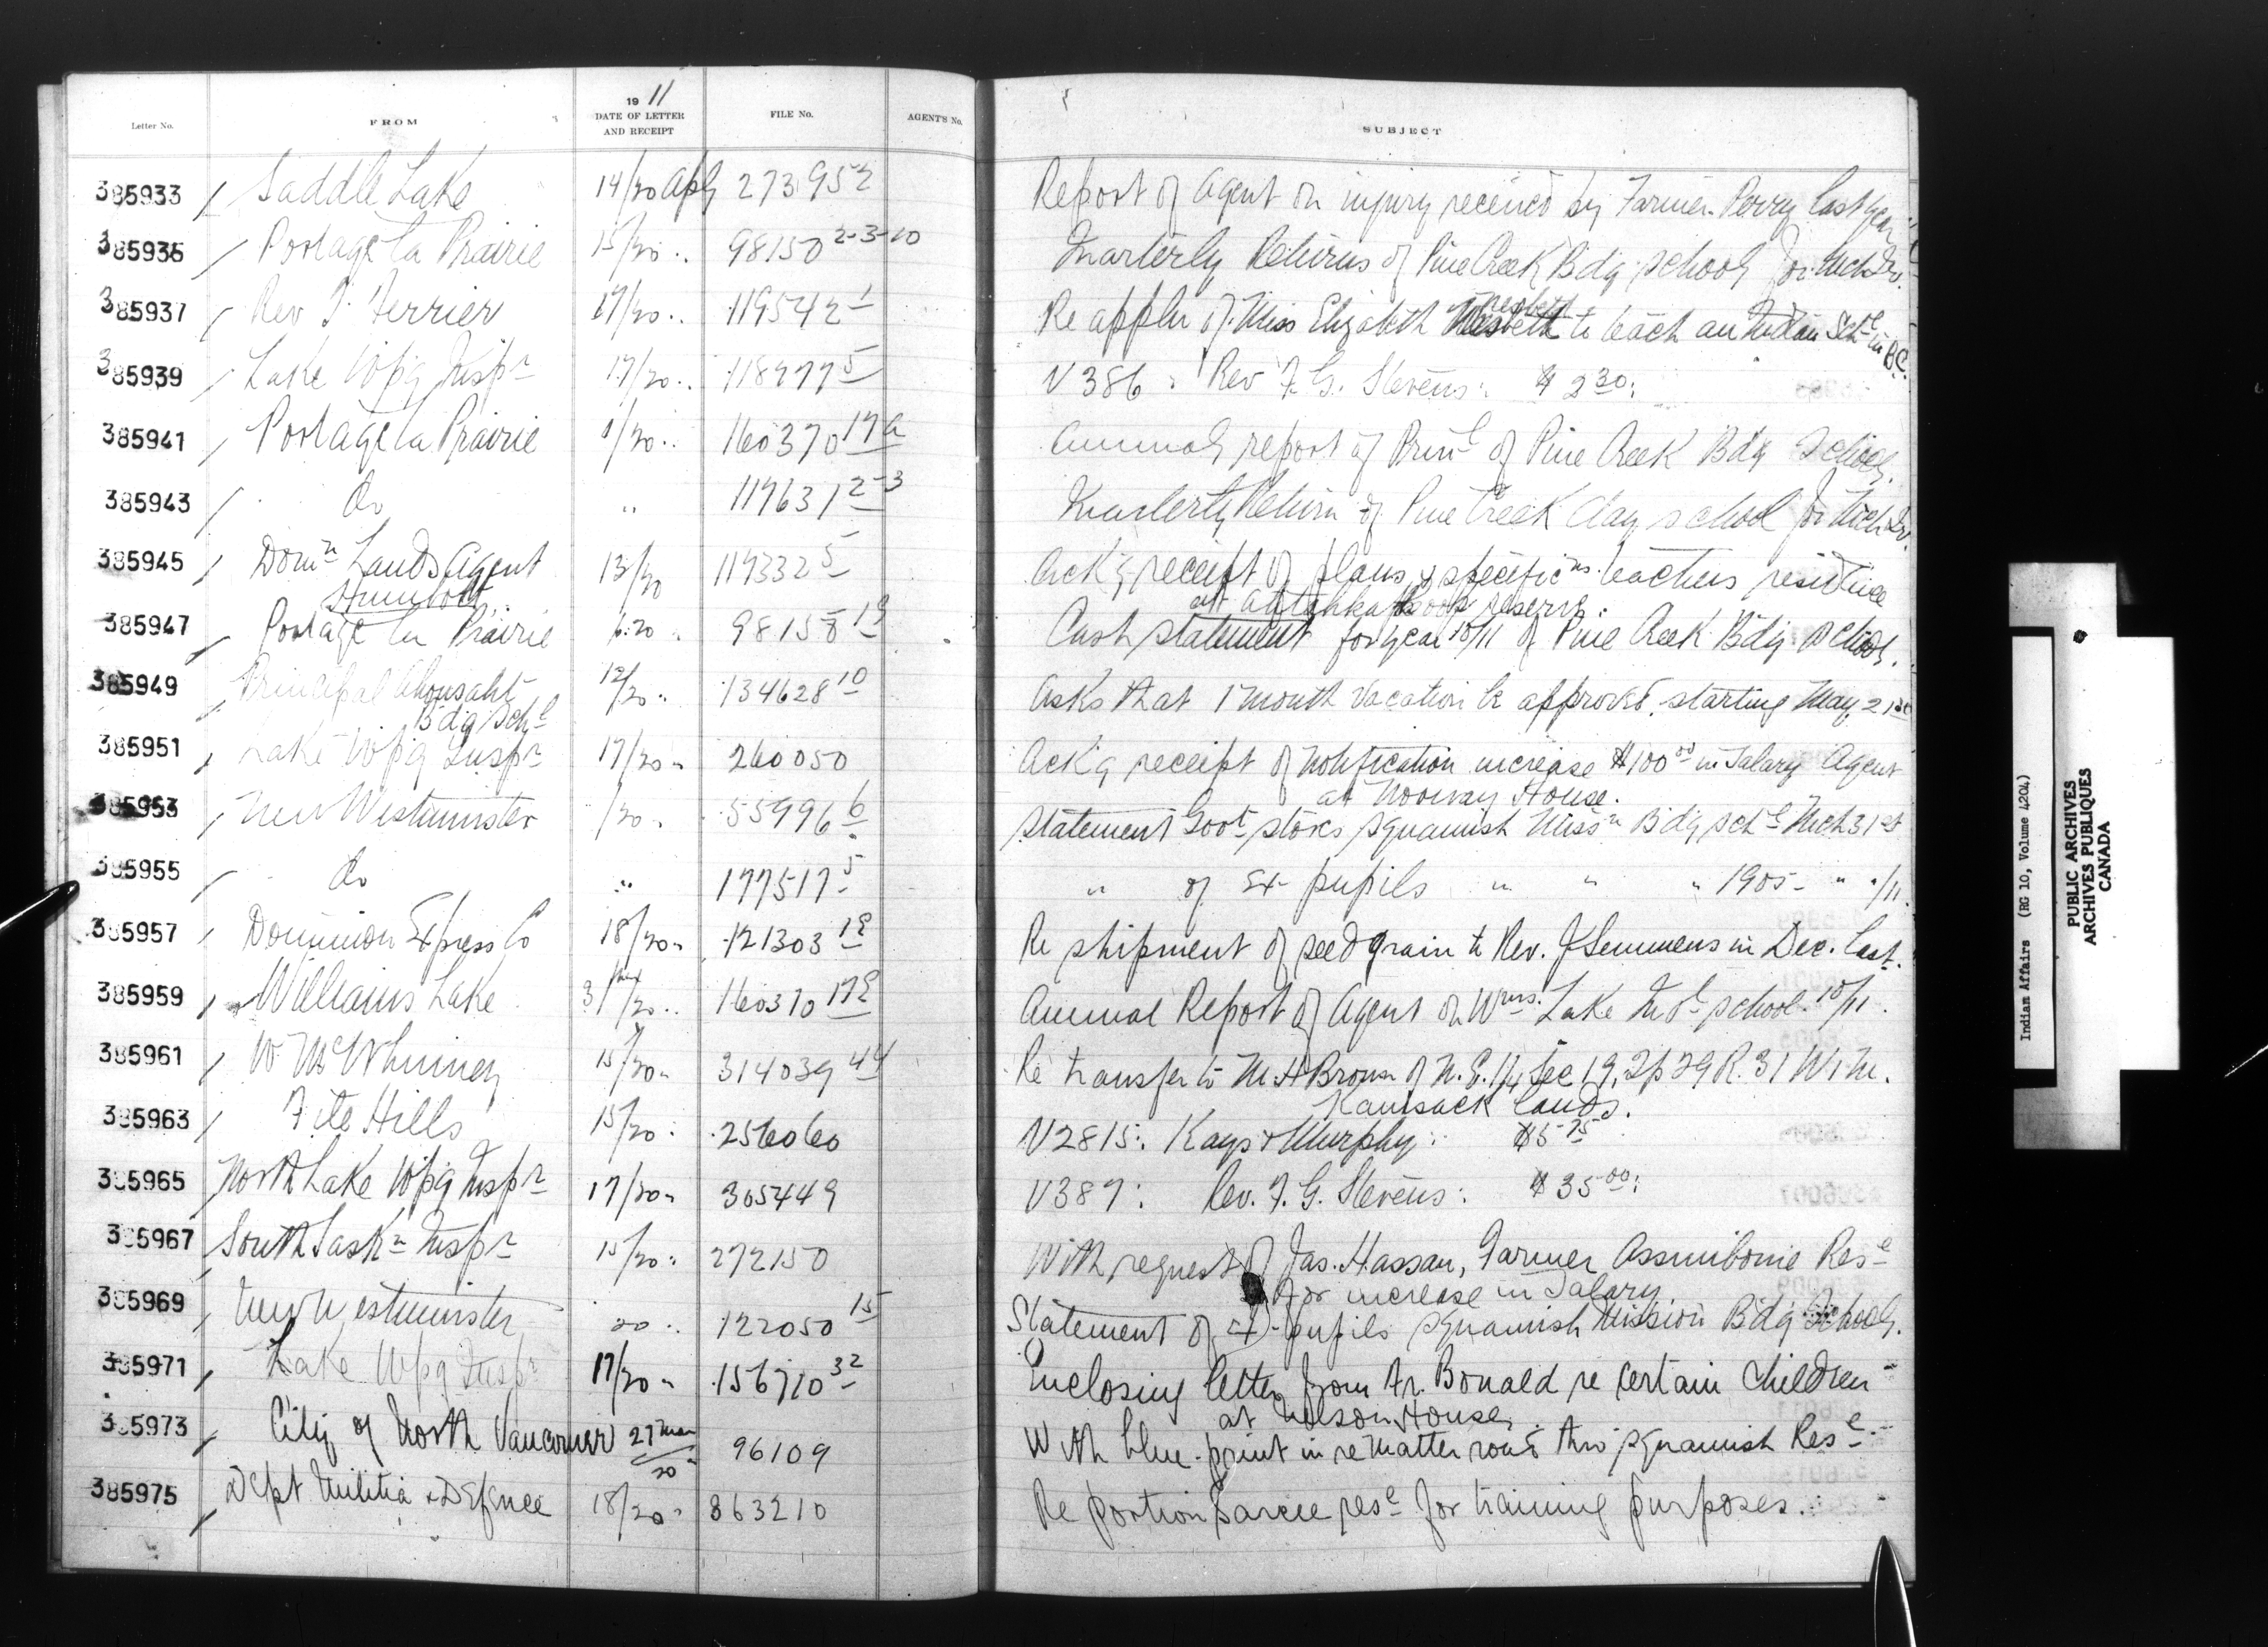 Letter No. FROM 19 11 DATE OF LETTER AND RECEIPT FILE No. AGENT'S No. SUBJECT
385933 Saddle Lake 14/20 Apl 273952 Report of Agent on injury received by Farmer Perry last year
385935 Portage la Prairie 15/20 " 98150 2-3-10 Quarterly Returns of Pine Creek Bdg school for Mch Qr.
385937 Rev T. Ferrier 17/20 " 119542 1 Re appln of Miss Elizabeth to teach an Indian Schl in B.C.
385939 Lake Wpg Inspr 17/20 " 118777 5 V 386 : Rev F. G. Stevens : $ 2 30 :
385941 Portage la Prairie /20 " 160370 17a Annual report of Prinl of Pine Creek Bdg School.
385943 Do " 117631 2-3 Quarterly Return of Pine Creek day school for Mch Qr.
385945 Domn Lands Agent 13/20 119332 5 Ack'g receipt of plans & specificns teachers residence
Humbolt at reserve.
385947 Portage la Prairie 6/20 " 98158 19 Cash statement for year 10/11 of Pine Creek Bdg School.
385949 Principal Ahousaht 12/20 " 134628 10 Asks that 1 month vacation be approved, starting May 21st
Bdg Schl
385951 Lake Wpg Inspr 17/20 " 260050 Ack'g receipt of notification increase $100 00 in Salary Agent
at Norway House.
385953 New Westminster /20 " 55996 6 Statement Govt stores Squamish Missn Bdg schl Mch 31st
385955 Do " 177517 5 " of Ex-pupils " " " 1905 - " "/11.
385957 Dominion Express Co 18/20 " 121303 19 Re shipment of seed grain to Rev. J Semmens in Dec. last.
385959 Williams Lake 31 Mar/20 " 160370 17e Annual Report of Agent on Wms. Lake Indl school 10/11.
385961 W. McWhinney 15/20 " 314039 44 Re transfer to M. H Brown of N. E. 1/4 Sec 19, Tp 29 R. 31 W1M.
Kamsack lands.
385963 File Hills 15/20 : 256060 V2815 : Kays & Murphy : $5 75
385965 North Lake Wpg Inspr 17/20 " 305449 V387 : Rev. F. G. Stevens : $ 35 00 :
385967 South Saskn Inspr 15/20 " 272150 With request of Jas. Hassan, Farmer Assiniboine Rese
for increase in Salary.
385969 New Westminster 20 " 122050 15 Statement of Ex-pupils Squamish Mission Bdg School.
385971 Lake Wpg Inspr 17/20 " 156710 32 Enclosing letter from Fr. Bonald re certain children
at Nelson House.
385973 City of North Vancouver 27 Mar/20 96109 With blue-print in re matter road thro' Squamish Rese
385975 Dept Militia & Defence 18/20 " 863210 Re portion Sarcee rese for training purposes.
Indian Affairs (RG 10, Volume 4204)
PUBLIC ARCHIVES
ARCHIVES PUBLIQUES
CANADA